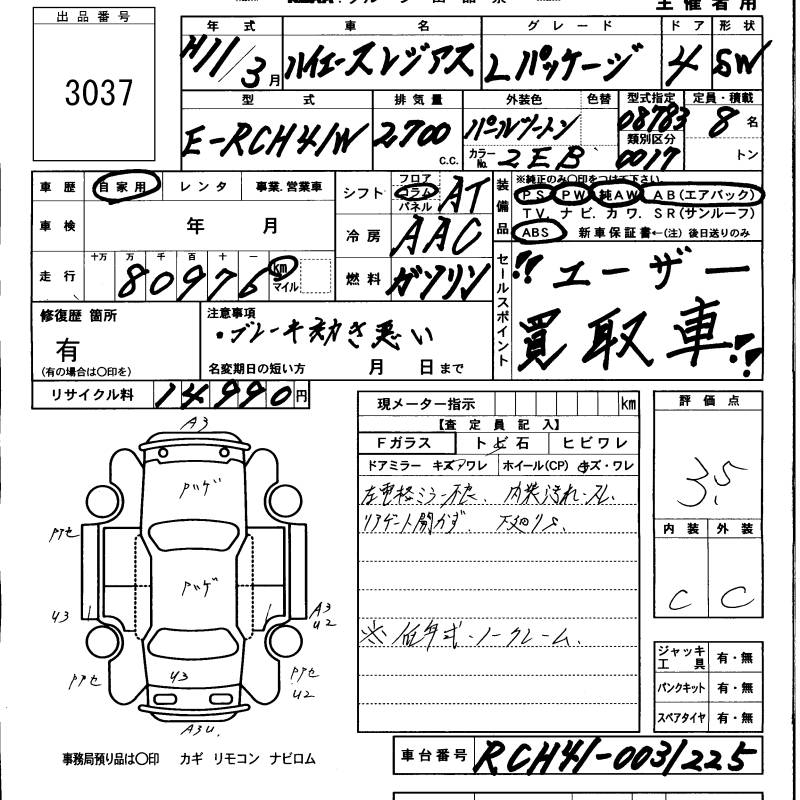 主催者用
出品番号
3037
年式 車名 グレード ドア 形状
H11/3月 ハイエースレジアス Lパッケージ 4 SW
型式 排気量 外装色 色替 型式指定 定員・積載
E-RCH41W 2700 c.c. パールツートン 08783 8名
カラーNo. 2EB 類別区分 0017 トン
車歴 自家用 レンタ 事業.営業車
シフト フロア コラム パネル AT
装備品 ※純正のみ○印をつけて下さい。
PS PW 純AW AB(エアバック)
TV. ナビ. カワ. SR(サンルーフ)
ABS 新車保証書←(注) 後日送りのみ
車検 年 月
冷房 AAC
走行 十万 万 千 百 十 一
80976 km マイル
燃料 ガソリン
セールスポイント !! ユーザー
買取車!!
修復歴 箇所
有
(有の場合は○印を)
注意事項
・ブレーキ効き悪い
名変期日の短い方 月 日まで
リサイクル料 14990円
現メーター指示 km
【査定員記入】
Fガラス トビ石 ヒビワレ
ドアミラー キズ・ワレ ホイール(CP) キズ・ワレ
内装汚れ・スレ
リアゲート開かず、
※低年式・ノークレーム.
評価点
3.5
内装 外装
C C
A3
アハゲ
アハゲ
U3
A3
U2
U3
U2
A3U.
ジャッキ工具 有・無
パンクキット 有・無
スペアタイヤ 有・無
事務局預り品は○印 カギ リモコン ナビロム
車台番号 RCH41-0031225